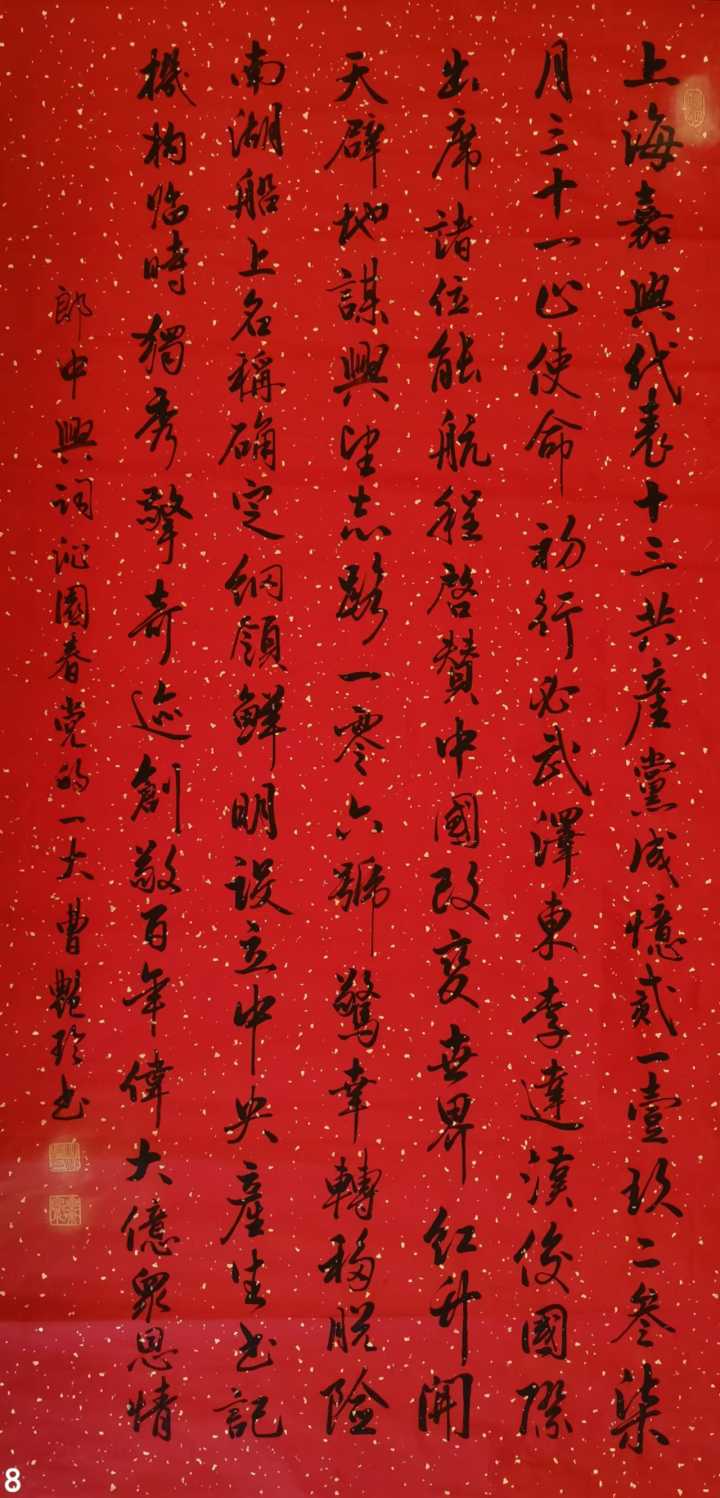 上海嘉興代表十三共産黨成憶貳一壹玖二叄柒
月三十一心使命初行必武澤東李達漢俊國際
出席諸位能航程啓贊中國改變世界紅升開
天辟地謀興望志路一零六號驚幸轉移脱險
南湖船上名稱确定綱領鮮明設立中央産生書記
機构臨時獨秀擎奇巡創敬百年偉大億衆恩情
郎中興詞沁園春党的一大曹艷珍书
8